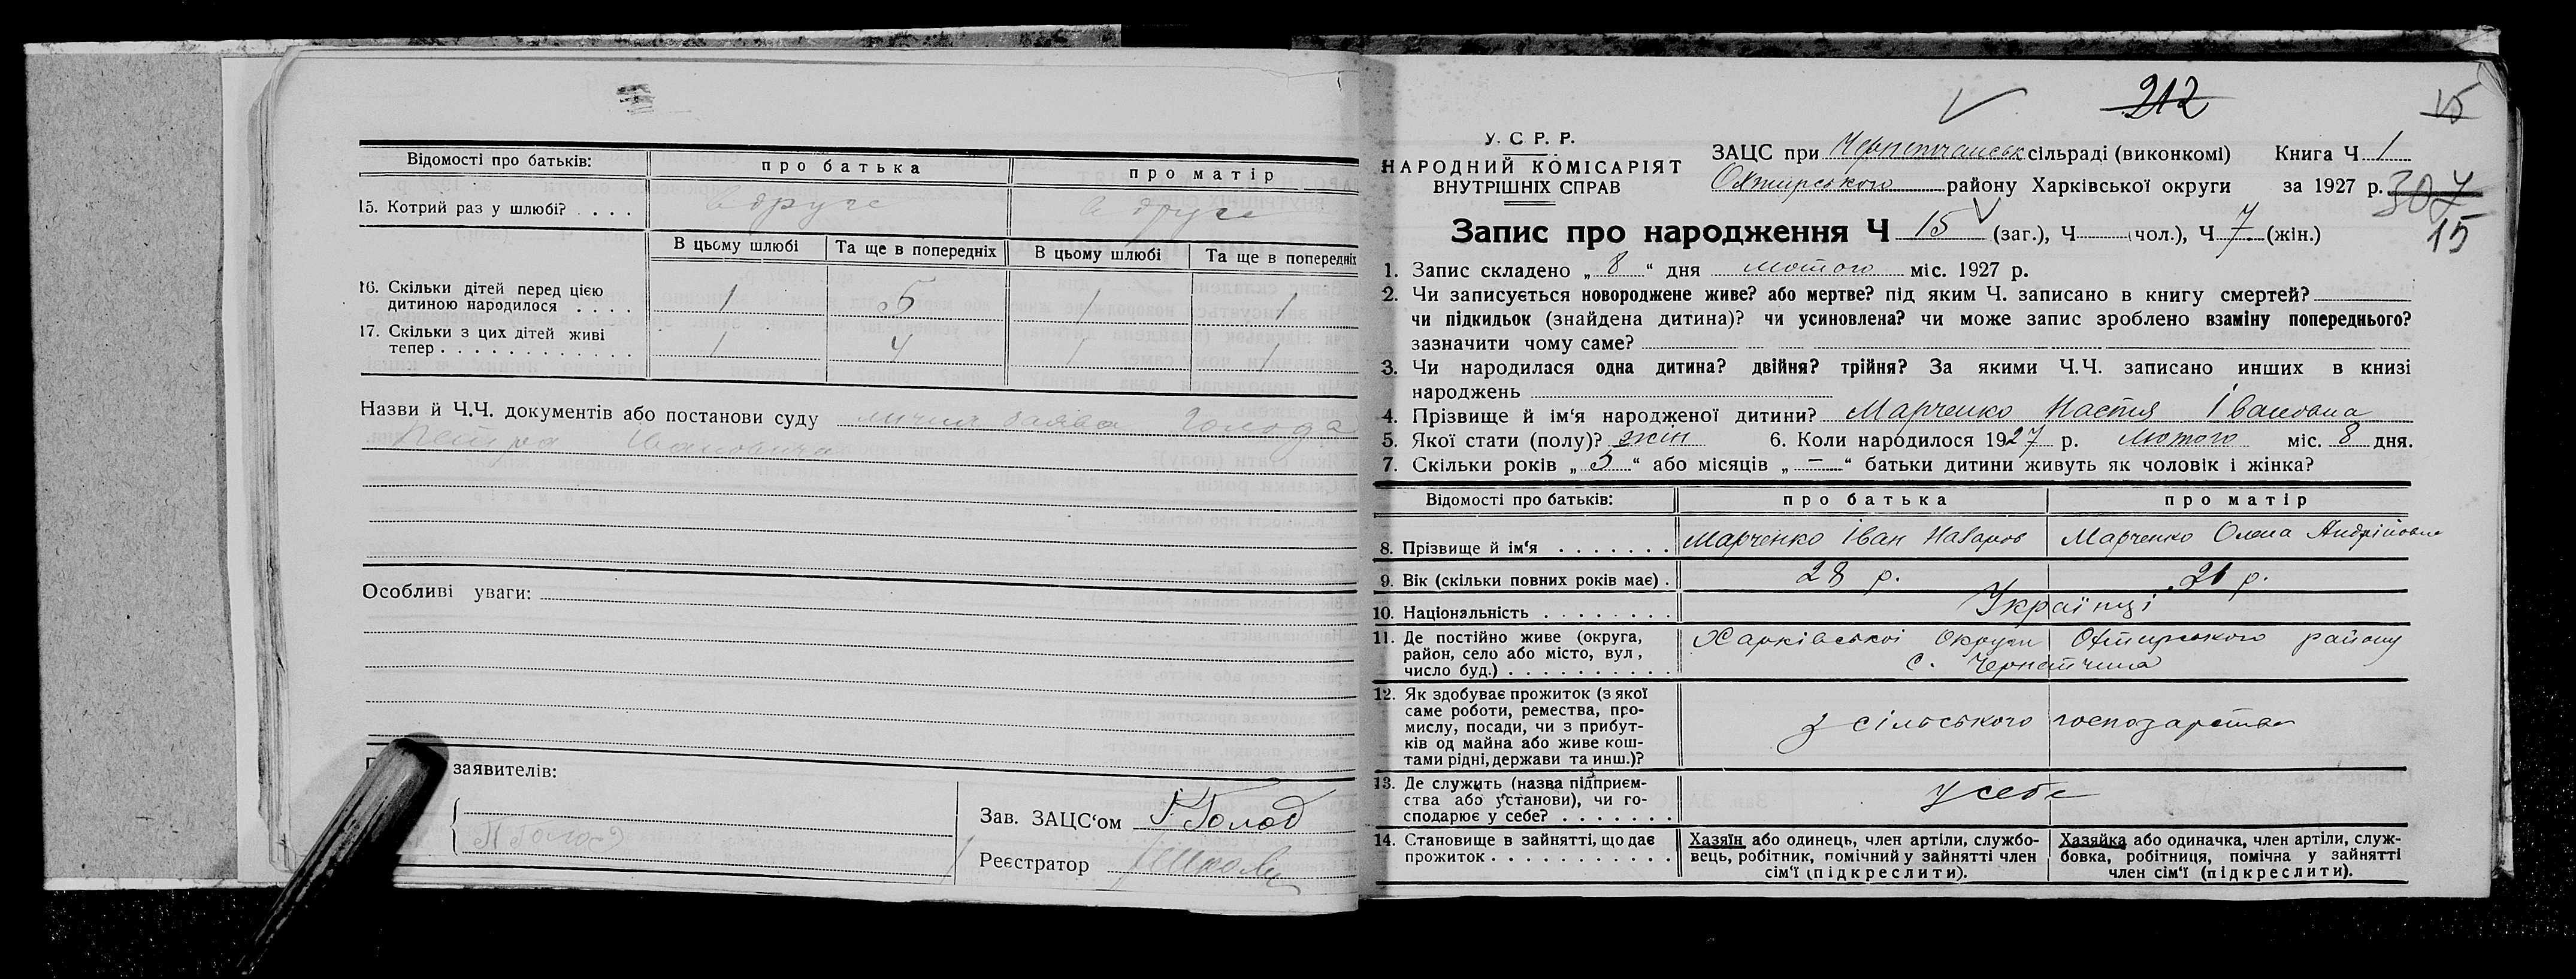 Відомості про батьків: про батька про матір
15. Котрий раз у шлюбі? . . . . вдруге вдруге
В цьому шлюбі Та ще в попередніх В цьому шлюбі Та ще в попередніх
16. Скільки дітей перед цією
дитиною народилося . . . . 1 5 1 1
17. Скільки з цих дітей живі
тепер . . . . . . . . . . . . 1 4 1 1
Назви й Ч.Ч. документів або постанови суду лична заява Голода
Петра Івановича
Особливі уваги:
заявителів:
П Голод
Зав. ЗАЦС‘ом Голод
Реєстратор
212 15
У. С. Р. Р.
НАРОДНИЙ КОМІСАРІЯТ
ВНУТРІШНІХ СПРАВ
ЗАЦС при Чернеттчанськ сільраді (виконкомі) Книга Ч 1
Охтирського району Харківської округи за 1927 р. 307
15
Запис про народження Ч 15 (заг.), Ч (чол.), Ч 7 (жін.)
1. Запис складено „ 8 “ дня лютого міс. 1927 р.
2. Чи записується новороджене живе? або мертве? під яким Ч. записано в книгу смертей?
чи підкидьок (знайдена дитина)? чи усиновлена? чи може запис зроблено взаміну попереднього?
зазначити чому саме?
3. Чи народилася одна дитина? двійня? трійня? За якими Ч.Ч. записано инших в книзі
народжень
4. Прізвище й ім‘я народженої дитини? Марченко Настя Івановна
5. Якої стати (полу)? жін 6. Коли народилося 1927 р. лютого міс. 8 дня.
7. Скільки років „ 5 “ або місяців „ — “ батьки дитини живуть як чоловік і жінка?
Відомості про батьків: про батька про матір
8. Прізвище й ім‘я . . . . . . . Марченко Іван Назаров Марченко Олена Андріївна
9. Вік (скільки повних років має) . 28 р. 21 р.
10. Національність . . . . . . . . Українці
11. Де постійно живе (округа,
район, село або місто, вул.,
число буд.) . . . . . . . . . . Харківської Округи Охтирського району
с. Чернетчина
12. Як здобуває прожиток (з якої
саме роботи, ремества, про-
мислу, посади, чи з прибут-
ків од майна або живе кош-
тами рідні, держави та инш.)? з сільського господарства
13. Де служить (назва підприєм-
ства або установи), чи го-
сподарює у себе? . . . . . . . у себе
14. Становище в зайнятті, що дає
прожиток . . . . . . . . . . .
Хазяїн або одинець, член артіли, службо-
вець, робітник, помічний у зайнятті член
сім‘ї (підкреслити).
Хазяйка або одиначка, член артіли, служ-
бовка, робітниця, помічна у зайнятті
член сім‘ї (підкреслити).